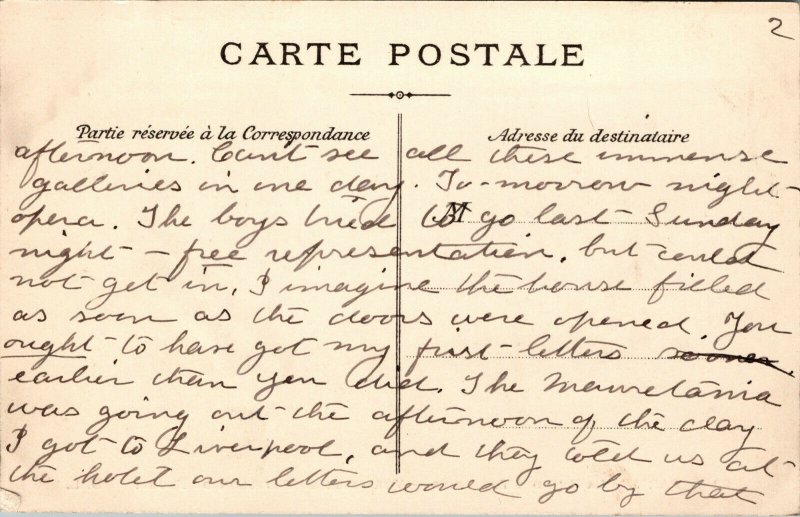 2
CARTE POSTALE
Partie réservée à la Correspondance
Adresse du destinataire
afternoon. Can't see all these immense
galleries in one day. To-morrow night-
opera. The boys tried to go last Sunday
M
night - free representation, but could
not get in. I imagine the house filled
as soon as the doors were opened. You
ought to have got my first letters sooner
earlier than you did. The Mauretania
was going out the afternoon of the day
I got to Liverpool, and they told us at
the hotel our letters would go by that